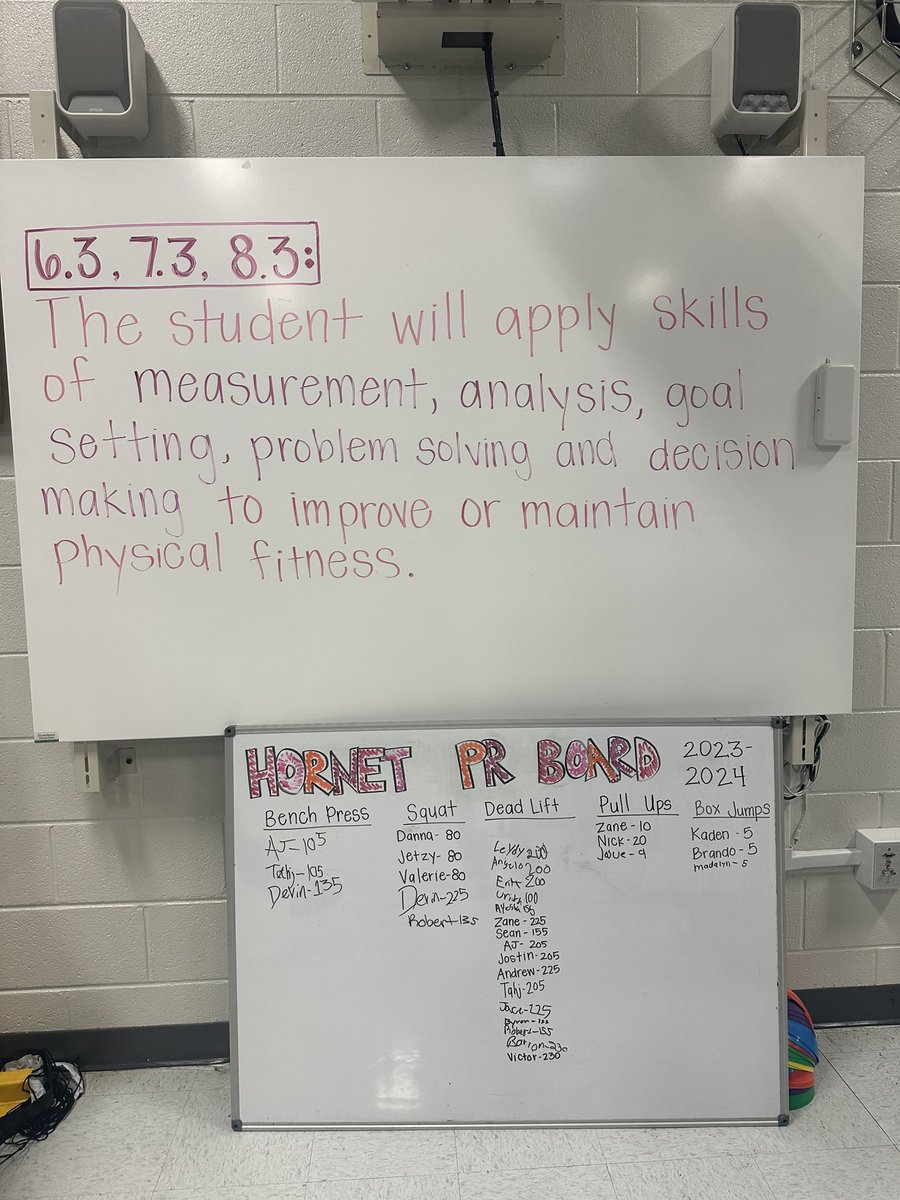 6.3, 7.3, 8.3:
The student will apply skills
of measurement, analysis, goal
setting, problem solving and decision
making to improve or maintain
physical fitness.
HORNET PR BOARD 2023-
2024
Bench Press
AJ-105
Tahj-105
Devin-135
Squat
Danna-80
Jetzy-80
Valerie-80
Devin-225
Robert 135
Dead Lift
200
200
200
100
Zane-225
Sean-155
AJ-205
Jostin-205
Andrew-225
Tahj-205
Jace-225
Robert-155
Victor-230
Pull Ups
Zane-10
Nick-20
Josue-9
Box Jumps
Kaden-5
Brando-5
madalyn-5